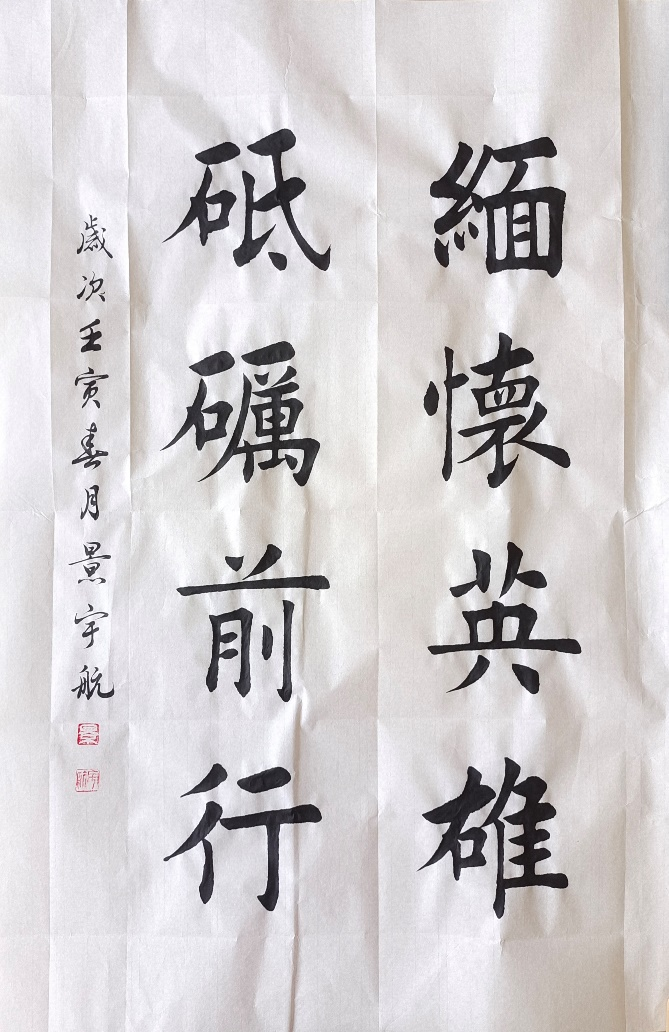 緬懷英雄
砥礪前行
歲次壬寅春月景宇航